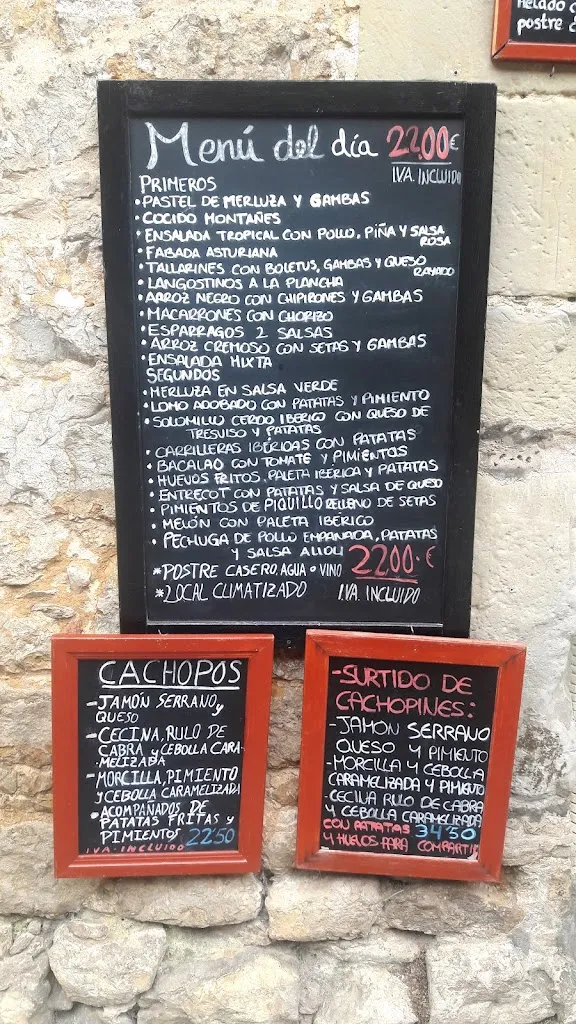 helado
postre
Menú del día 22.00€
IVA. INCLUIDO
PRIMEROS
• PASTEL DE MERLUZA Y GAMBAS
• COCIDO MONTAÑES
• ENSALADA TROPICAL CON POLLO, PIÑA Y SALSA
ROSA
• FABADA ASTURIANA
• TALLARINES CON BOLETUS, GAMBAS Y QUESO
RAYADO
• LANGOSTINOS A LA PLANCHA
• ARROZ NEGRO CON CHIPIRONES Y GAMBAS
• MACARRONES CON CHORIZO
• ESPARRAGOS 2 SALSAS
• ARROZ CREMOSO CON SETAS Y GAMBAS
• ENSALADA MIXTA
SEGUNDOS
• MERLUZA EN SALSA VERDE
• LOMO ADOBADO CON PATATAS Y PIMIENTO
• SOLOMILLO CERDO IBERICO CON QUESO DE
TRESVISO Y PATATAS
• CARRILLERAS IBÉRICAS CON PATATAS
• BACALAO CON TOMATE Y PIMIENTOS
• HUEVOS FRITOS, PALETA IBERICA Y PATATAS
• ENTRECOT CON PATATAS Y SALSA DE QUESO
• PIMIENTOS DE PIQUILLO RELLENO DE SETAS
• MELÓN CON PALETA IBÉRICO
• PECHUGA DE POLLO EMPANADA, PATATAS
Y SALSA ALIOLI 22.00.€
*POSTRE CASERO, AGUA O VINO
*LOCAL CLIMATIZADO IVA. INCLUIDO
CACHOPOS
-JAMÓN SERRANO Y
QUESO
-CECINA, RULO DE
CABRA Y CEBOLLA CARA
-MELIZADA
-MORCILLA, PIMIENTO
Y CEBOLLA CARAMELIZADA
• ACOMPAÑADOS DE
PATATAS FRITAS Y
PIMIENTOS 22'50
IVA. INCLUIDO
-SURTIDO DE
CACHOPINES:
-JAMON SERRANO
QUESO Y PIMIENTO
-MORCILLA Y CEBOLLA
CARAMELIZADA Y PIMIENTO
-CECINA RULO DE CABRA
Y CEBOLLA CARAMELIZADA
CON PATATAS 34'50
Y HUEVOS PARA COMPARTIR